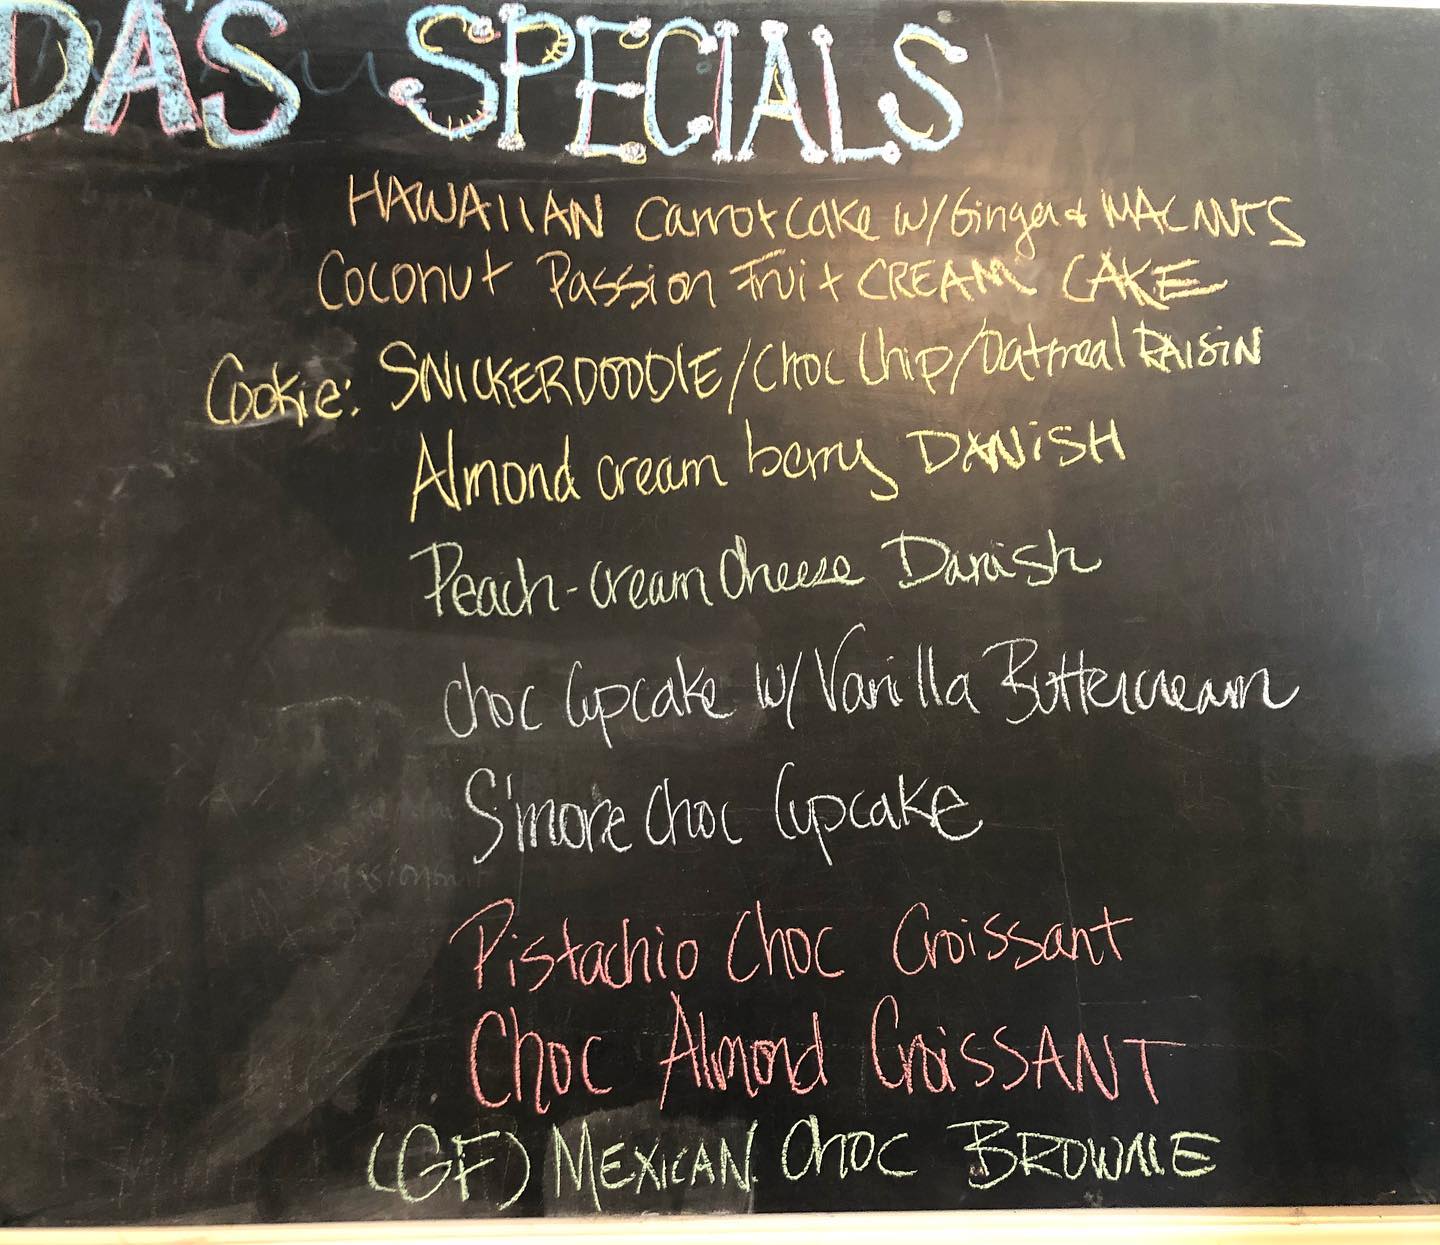 DA'S SPECIALS
HAWAIIAN Carrot Cake w/ Ginger & MACNUTS
Coconut Passion Fruit CREAM CAKE
Cookie: SNICKERDOODLE/Choc Chip/Oatmeal RAISIN
Almond cream berry DANISH
Peach-cream Cheese Danish
choc Cupcake w/ Vanilla Buttercream
S'more Choc Cupcake
Pistachio Choc Croissant
Choc Almond CroissANT
(GF) MEXICAN Choc BROWNIE